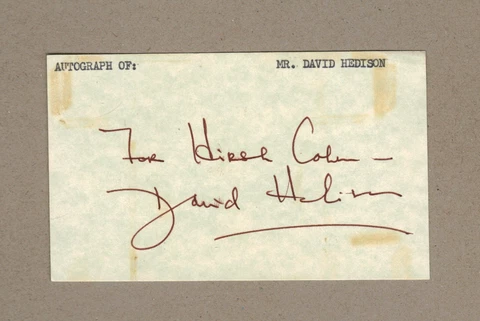 AUTOGRAPH OF: MR. DAVID HEDISON
For Hirsh Cohen —
David Hedison